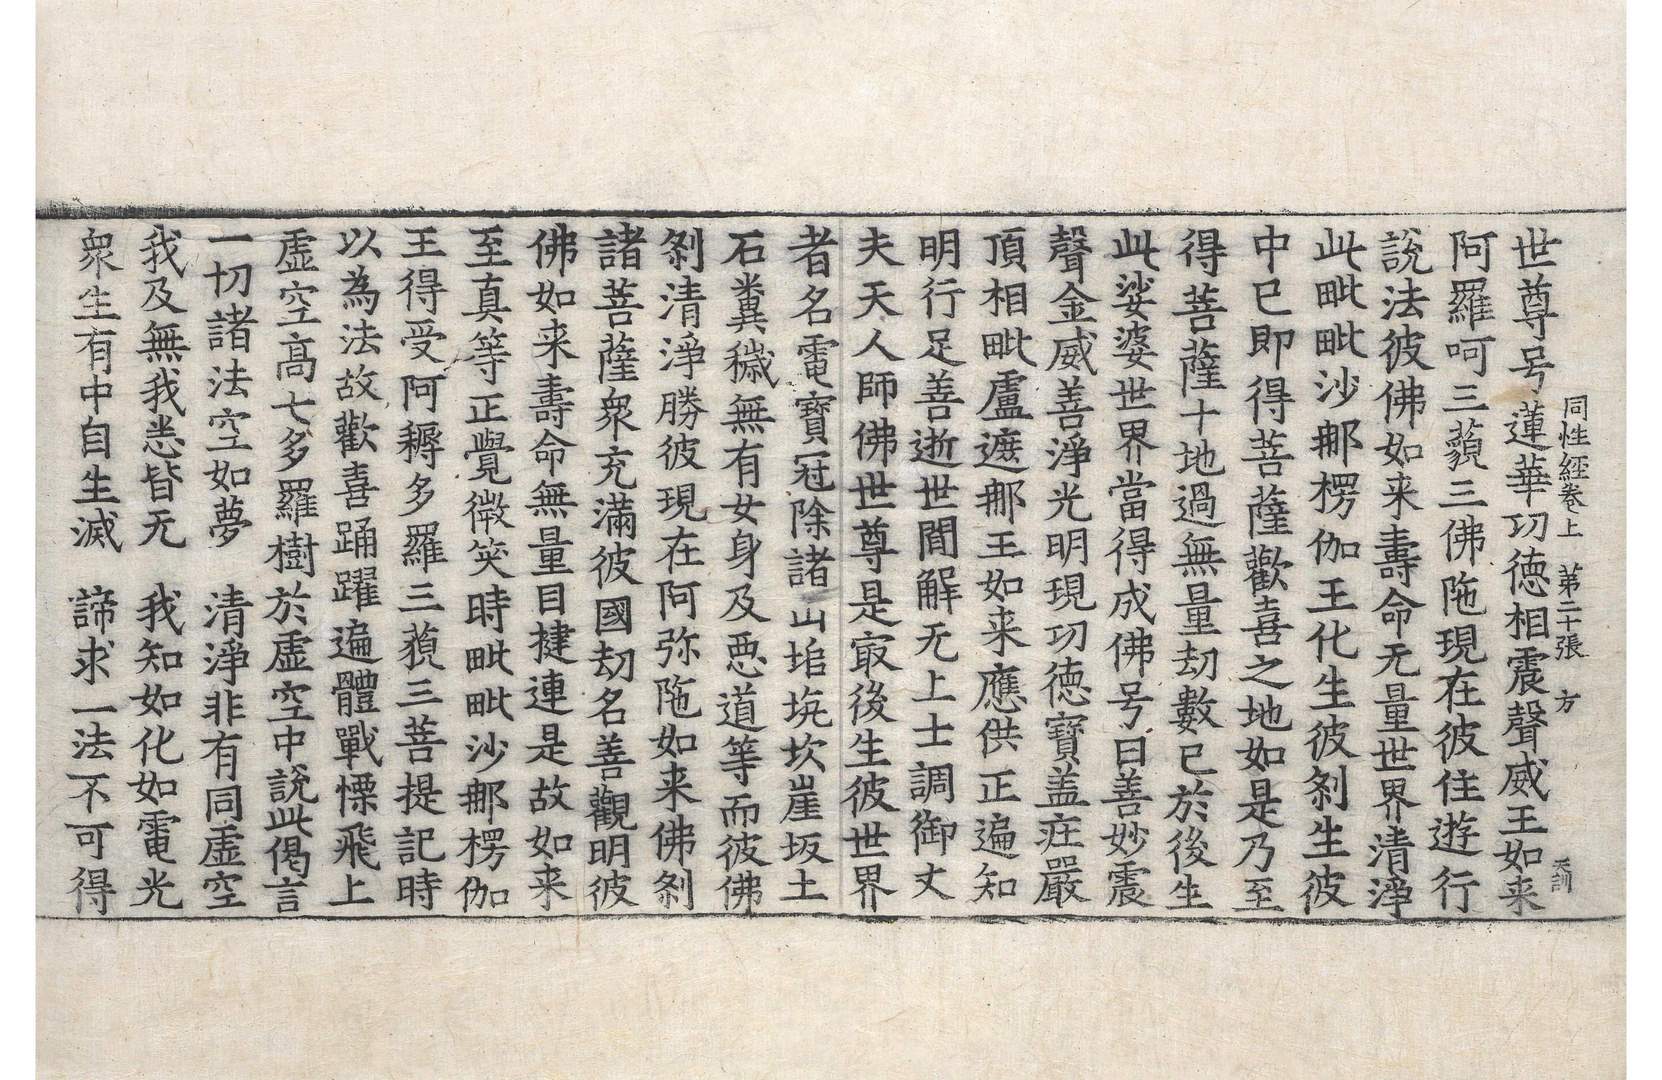 同性經卷上　第二十張　方　天訓
世尊号蓮華功德相震聲威王如来
阿羅呵三藐三佛陁現在彼住遊行
說法彼佛如来壽命无量世界清淨
此毗毗沙郍楞伽王化生彼剎生彼
中已即得菩薩歡喜之地如是乃至
得菩薩十地過無量劫數已於後生
此娑婆世界當得成佛号曰善妙震
聲金威善淨光明現功德寶盖㽵嚴
頂相毗盧遮郍王如来應供正遍知
明行足善逝世閒解无上士調御丈
夫天人師佛世尊是㝡後生彼世界
者名電寶冠除諸山塠垸坎崖坂土
石糞穢無有女身及惡道等而彼佛
剎清淨勝彼現在阿弥陁如来佛剎
諸菩薩衆充滿彼國劫名善觀明彼
佛如来壽命無量目揵連是故如来
至真等正覺微笑時毗毗沙郍楞伽
王得受阿耨多羅三藐三菩提記時
以為法故歡喜踊躍遍體戰慄飛上
虛空高七多羅樹於虛空中說此偈言
一切諸法空如夢　清淨非有同虛空
我及無我悉皆无　我知如化如電光
衆生有中自生滅　諦求一法不可得